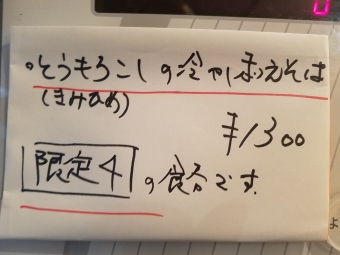 ・とうもろこしの冷やし和えそば
(きみひめ)
¥1300
限定4の食合です.
よ